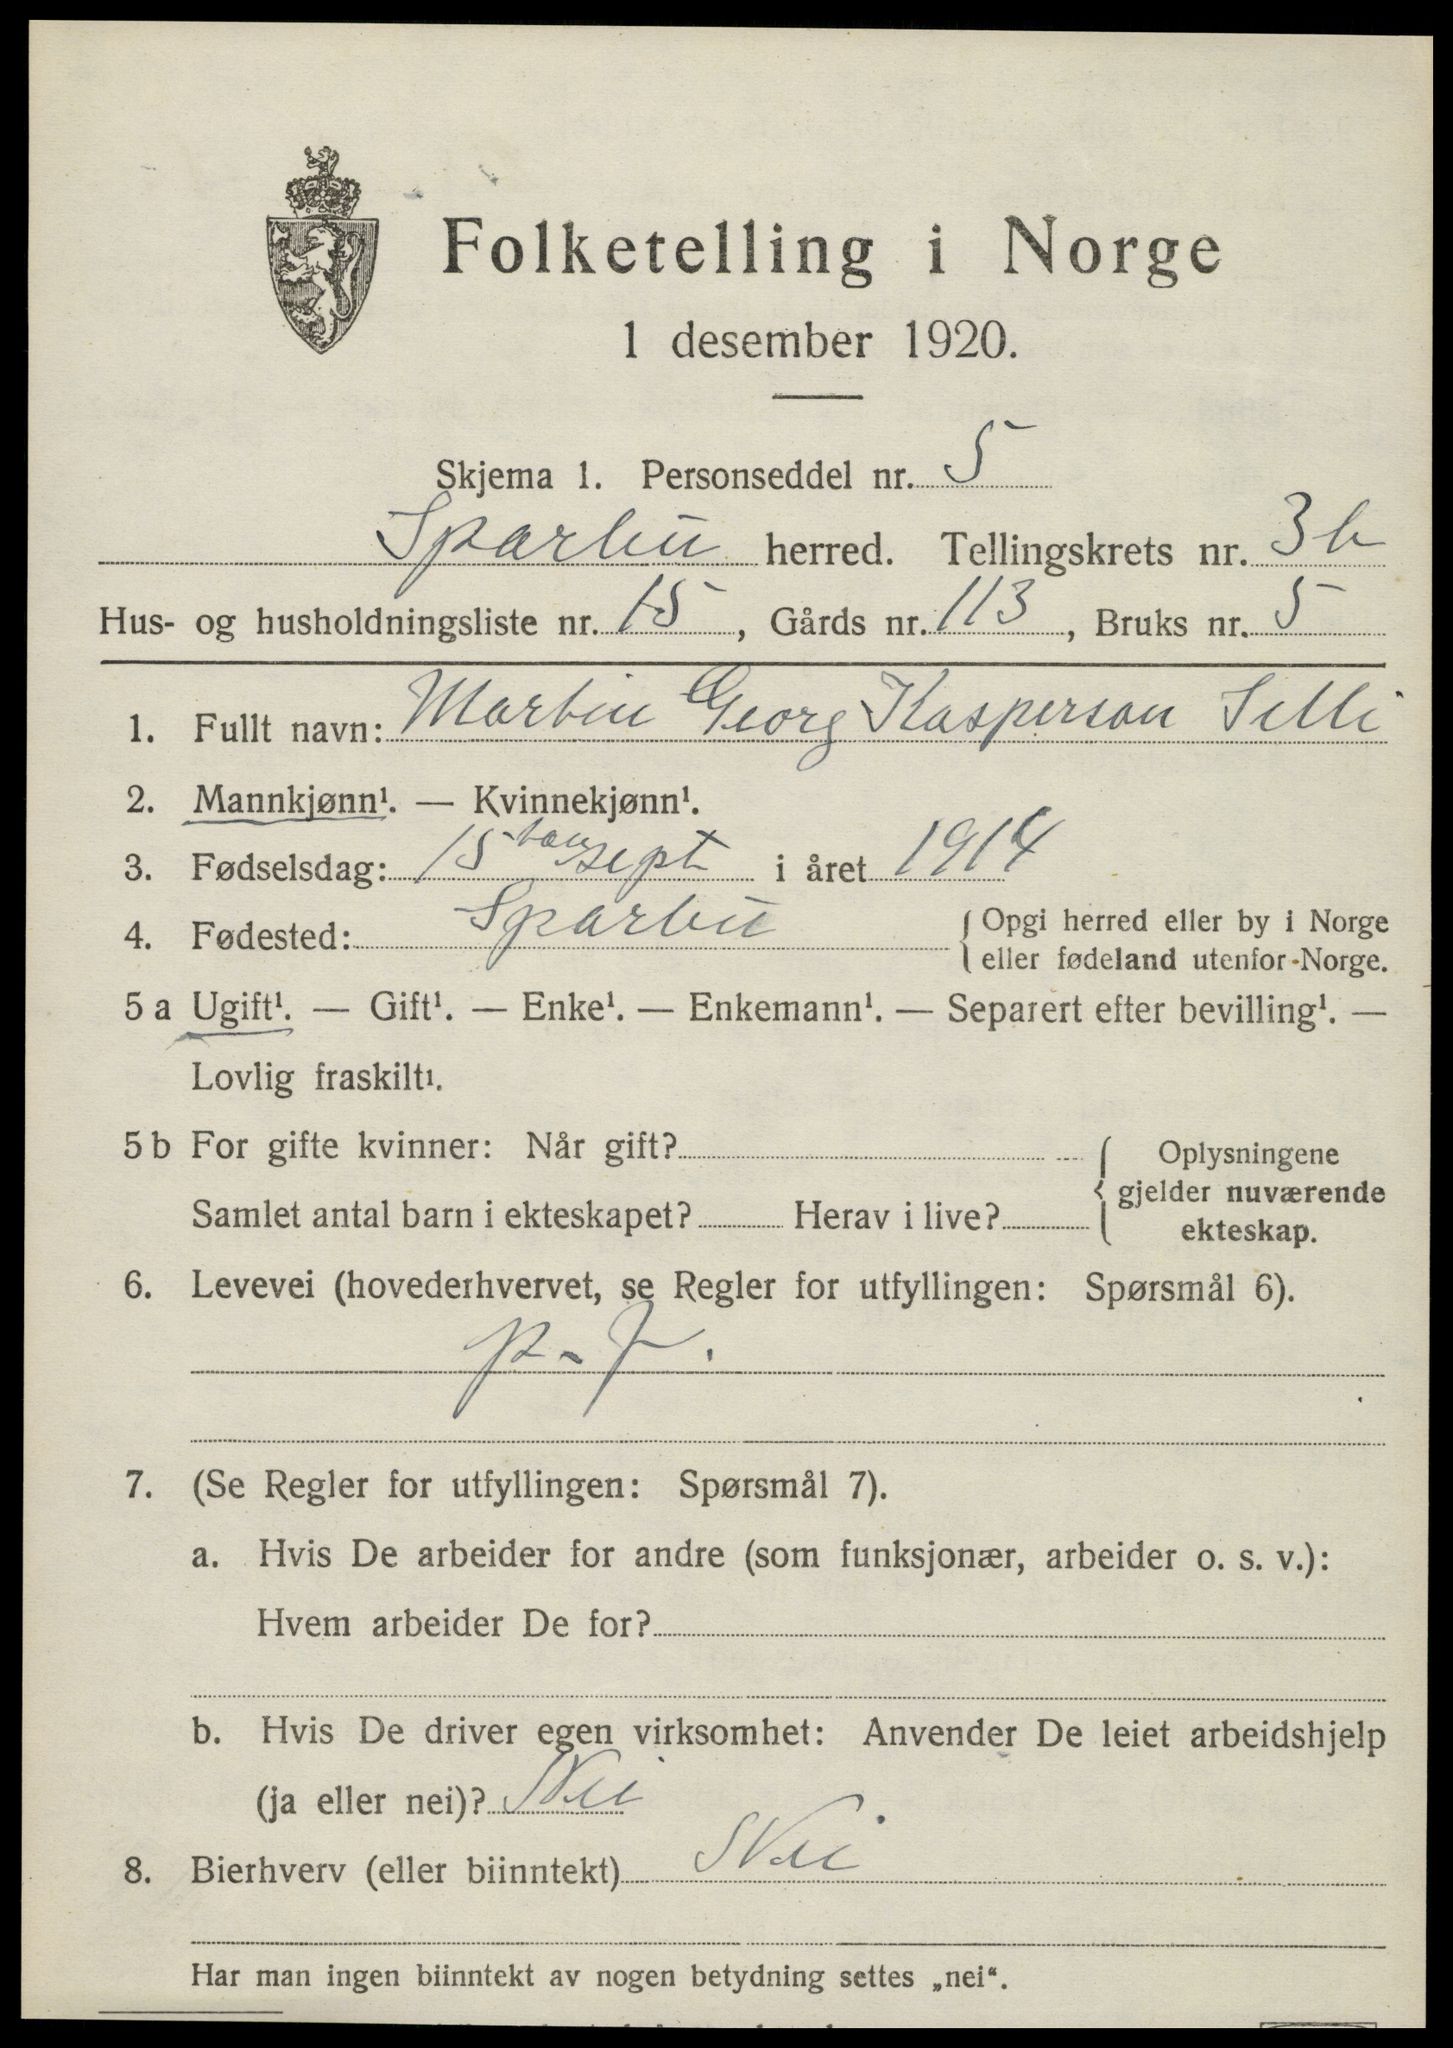 Folketelling i Norge
1 desember 1920.
Skjema 1. Personseddel nr. 5
Sparbu herred. Tellingskrets nr. 3b
Hus- og husholdningsliste nr. 15, Gårds nr. 113, Bruks nr. 5
1. Fullt navn: Martin Georg Kasperson Selli
2. Mannkjønn¹. — Kvinnekjønn¹.
3. Fødselsdag: 15 sept i året 1914
4. Fødested: Sparbu {Opgi herred eller by i Norge
eller fødeland utenfor Norge.
5 a Ugift¹. — Gift¹. — Enke¹. — Enkemann¹. — Separert efter bevilling¹. —
Lovlig fraskilt¹.
5 b For gifte kvinner: Når gift? { Oplysningene
gjelder nuværende
Samlet antal barn i ekteskapet? Herav i live?
ekteskap.
6. Levevei (hovederhvervet, se Regler for utfyllingen: Spørsmål 6).
7. (Se Regler for utfyllingen: Spørsmål 7).
a. Hvis De arbeider for andre (som funksjonær, arbeider o. s. v.):
Hvem arbeider De for?
b. Hvis De driver egen virksomhet: Anvender De leiet arbeidshjelp
(ja eller nei)? Nei
8. Bierhverv (eller biinntekt) Nei
Har man ingen biinntekt av nogen betydning settes „nei“.